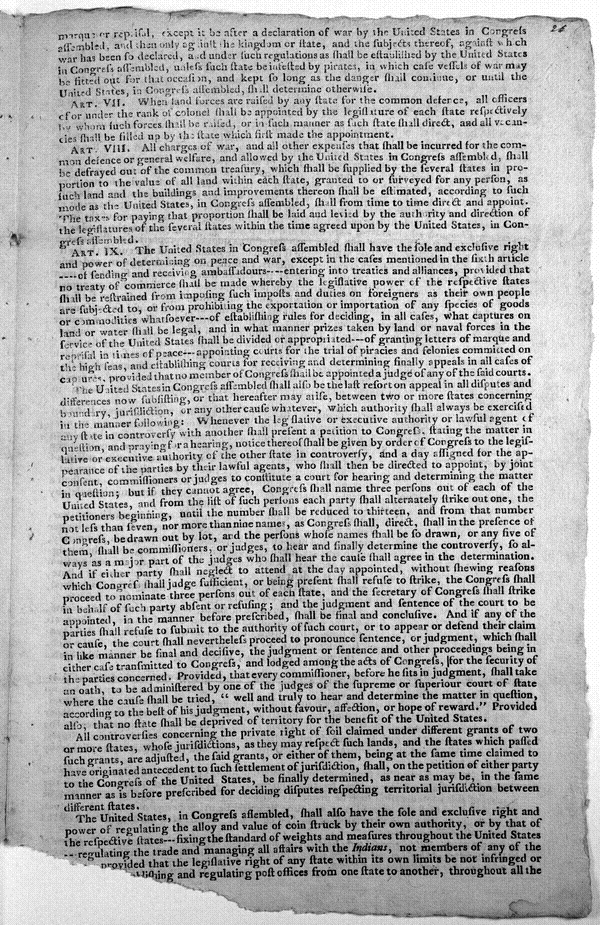 26
marque or reprisal, except it be after a declaration of war by the United States in Congreſs
aſſembled, and then only againſt the kingdom or ſtate, and the ſubjects thereof, againſt which
war has been ſo declared, and under ſuch regulations as ſhall be eſtabliſhed by the United States
in Congreſs aſſembled, unleſs ſuch ſtate be infeſted by pirates, in which caſe veſſels of war may
be fitted out for that occaſion, and kept ſo long as the danger ſhall continue, or until the
United States, in Congreſs aſſembled, ſhall determine otherwiſe.
ART. VII. When land forces are raiſed by any ſtate for the common defence, all officers
of or under the rank of colonel ſhall be appointed by the legiſlature of each ſtate reſpectively
by whom ſuch forces ſhall be raiſed, or in ſuch manner as ſuch ſtate ſhall direct, and all vacan-
cies ſhall be filled up by the ſtate which firſt made the appointment.
ART. VIII. All charges of war, and all other expenſes that ſhall be incurred for the com-
mon defence or general welfare, and allowed by the United States in Congreſs aſſembled, ſhall
be defrayed out of the common treaſury, which ſhall be ſupplied by the ſeveral ſtates in pro-
portion to the value of all land within each ſtate, granted to or ſurveyed for any perſon, as
ſuch land and the buildings and improvements thereon ſhall be eſtimated, according to ſuch
mode as the United States, in Congreſs aſſembled, ſhall from time to time direct and appoint.
The taxes for paying that proportion ſhall be laid and levied by the authority and direction of
the legiſlatures of the ſeveral ſtates within the time agreed upon by the United States, in Con-
greſs aſſembled.
ART. IX. The United States in Congreſs aſſembled ſhall have the ſole and excluſive right
and power of determining on peace and war, except in the caſes mentioned in the ſixth article
----of ſending and receiving ambaſſadours----entering into treaties and alliances, provided that
no treaty of commerce ſhall be made whereby the legiſlative power of the reſpective ſtates
ſhall be reſtrained from impoſing ſuch impoſts and duties on foreigners as their own people
are ſubjected to, or from prohibiting the exportation or importation of any ſpecies of goods
or commodities whatſoever---of eſtabliſhing rules for deciding, in all caſes, what captures on
land or water ſhall be legal, and in what manner prizes taken by land or naval forces in the
ſervice of the United States ſhall be divided or appropriated---of granting letters of marque and
repriſal in times of peace---appointing courts for the trial of piracies and felonies committed on
the high ſeas, and eſtabliſhing courts for receiving and determining finally appeals in all caſes of
captures, provided that no member of Congreſs ſhall be appointed a judge of any of the ſaid courts.
The United States in Congreſs aſſembled ſhall alſo be the laſt reſort on appeal in all diſputes and
differences now ſubſiſting, or that hereafter may ariſe, between two or more ſtates concerning
boundary, juriſdiction, or any other cauſe whatever, which authority ſhall always be exerciſed
in the manner following: Whenever the legiſlative or executive authority or lawful agent of
any ſtate in controverſy with another ſhall preſent a petition to Congreſs, ſtating the matter in
queſtion, and praying for a hearing, notice thereof ſhall be given by order of Congreſs to the legiſ-
lative or executive authority of the other ſtate in controverſy, and a day aſſigned for the ap-
pearance of the parties by their lawful agents, who ſhall then be directed to appoint, by joint
conſent, commiſſioners or judges to conſtitute a court for hearing and determining the matter
in queſtion; but if they cannot agree, Congreſs ſhall name three perſons out of each of the
United States, and from the liſt of ſuch perſons each party ſhall alternately ſtrike out one, the
petitioners beginning, until the number ſhall be reduced to thirteen, and from that number
not leſs than ſeven, nor more than nine names, as Congreſs ſhall, direct, ſhall in the preſence of
Congreſs, be drawn out by lot, and the perſons whoſe names ſhall be ſo drawn, or any five of
them, ſhall be commiſſioners, or judges, to hear and finally determine the controverſy, ſo al-
ways as a major part of the judges who ſhall hear the cauſe ſhall agree in the determination.
And if either party ſhall neglect to attend at the day appointed, without ſhewing reaſons
which Congreſs ſhall judge ſufficient, or being preſent ſhall refuſe to ſtrike, the Congreſs ſhall
proceed to nominate three perſons out of each ſtate, and the ſecretary of Congreſs ſhall ſtrike
in behalf of ſuch party abſent or refuſing; and the judgment and ſentence of the court to be
appointed, in the manner before preſcribed, ſhall be final and concluſive. And if any of the
parties ſhall refuſe to ſubmit to the authority of ſuch court, or to appear or defend their claim
or cauſe, the court ſhall nevertheleſs proceed to pronounce ſentence, or judgment, which ſhall
in like manner be final and deciſive, the judgment or ſentence and other proceedings being in
either caſe tranſmitted to Congreſs, and lodged among the acts of Congreſs, for the ſecurity of
the parties concerned. Provided, that every commiſſioner, before he ſits in judgment, ſhall take
an oath, to be adminiſtered by one of the judges of the ſupreme or ſuperiour court of ſtate
where the cauſe ſhall be tried, "well and truly to hear and determine the matter in queſtion,
according to the beſt of his judgment, without favour, affection, or hope of reward." Provided
alſo; that no ſtate ſhall be deprived of territory for the benefit of the United States.
All controverſies concerning the private right of ſoil claimed under different grants of two
or more ſtates, whoſe juriſdictions, as they may reſpect ſuch lands, and the ſtates which paſſed
ſuch grants, are adjuſted, the ſaid grants, or either of them, being at the ſame time claimed to
have originated antecedent to ſuch ſettlement of juriſdiction, ſhall, on the petition of either party
to the Congreſs of the United States, be finally determined, as near as may be, in the ſame
manner as is before preſcribed for deciding diſputes reſpecting territorial juriſdiction between
different ſtates.
The United States, in Congreſs aſſembled, ſhall alſo have the ſole and excluſive right and
power of regulating the alloy and value of coin ſtruck by their own authority, or by that of
the reſpective ſtates---fixing the ſtandard of weights and meaſures throughout the United States
---regulating the trade and managing all affairs with the Indians, not members of any of the
provided that the legiſlative right of any ſtate within its own limits be not infringed or
and regulating poſt offices from one ſtate to another, throughout all the